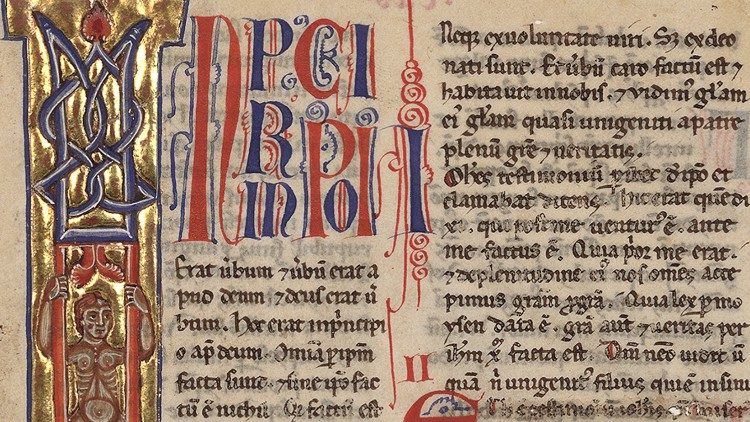 N P CI
R PI
in PO
Erat ūbum ⁊ ūbū erat a
pud deum ⁊ deus erat ū
bum. Hec erat inprīncipi
o ap̄ deum. Om̄ia p̄ ip̄m
facta sunt. ⁊ sine ip̄o fac
tū ē nichil. Q̄ factū est
I
II
Neq; exuoluntate uiri. S; exdeo
nati sunt. Et ūbū caro factū est ⁊
habitauit innobis. ⁊ uidim' gl̄am
ei' gl̄am quasi unigeniti apatre
plenū gr̄e ⁊ ueritatis.
Ioh̄es testimoniū dip̄o et
clamabat dicens. hic erat quē di
xi. quı post me uentur' ē. ante
me factus ē. Quia p̄or me erat.
⁊ deplenitudine ei' nos om̄s acce
pimus gr̄am p gr̄a. Quia lex p mo
ysen data ē. gr̄a aut̄ ⁊ ueritas per
ih̄m xp̄ facta est. Dm̄ nēo uidit ū
quā n̄ unigenit' filius, qui ē insinu